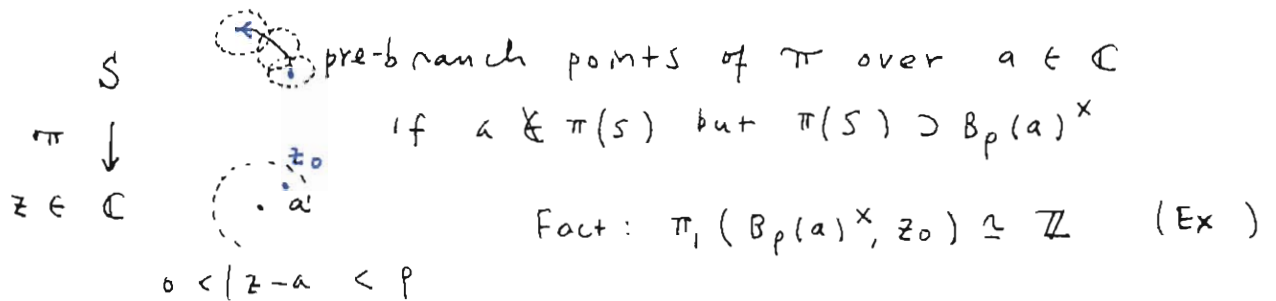 S pre-branch points of π over a ∈ ℂ
π ↓ if a ∉ π(S) but π(S) ⊃ B_ρ(a)^×
z_0
z ∈ ℂ . a
Fact : π_1 ( B_ρ(a)^×, z_0 ) ≃ ℤ (Ex )
0 < |z - a < ρ